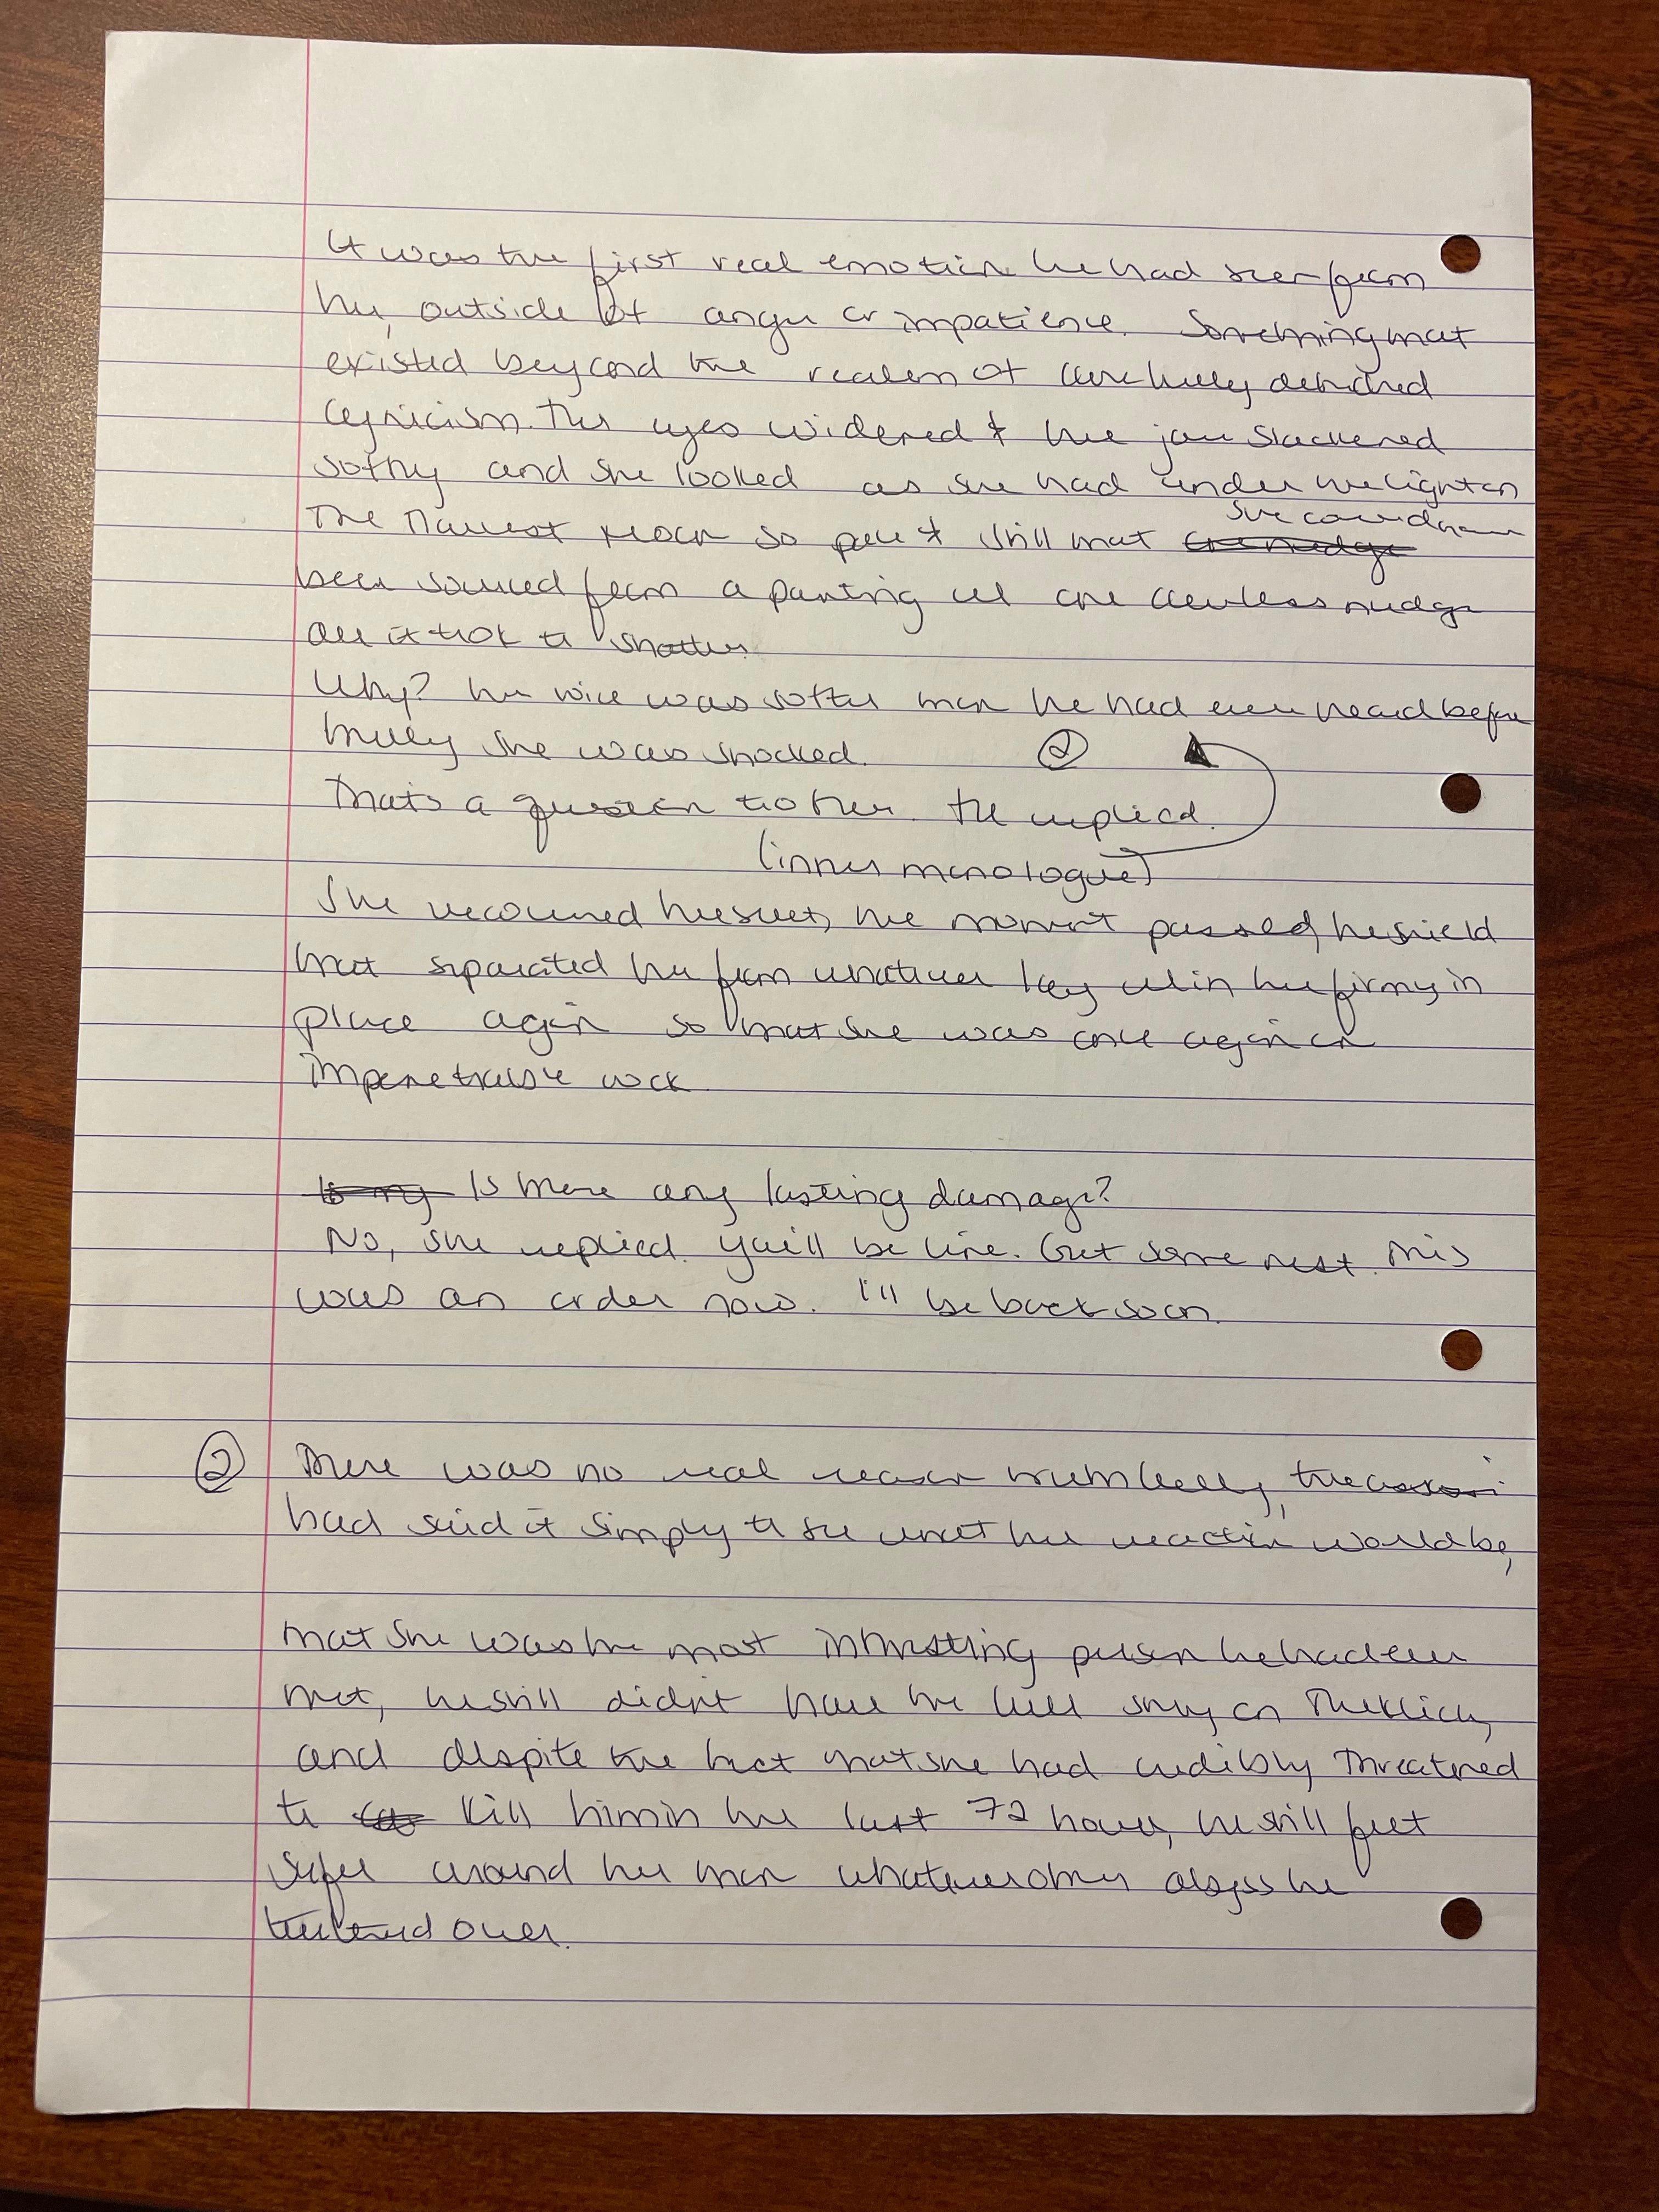 It was the first real emotion he had seen from
her, outside of anger or impatience. Something that
existed beyond the realm of carefully detached
cynicism. Her eyes widened & her jaw slackened
softly and she looked as she had under the light on
the so pale & still that she could have
been sourced from a painting all one careless nudge
all it took to shatter
Why? her voice was softer than he had ever heard before
truly she was shocked. ②
Thats a question He replied.
(inner monologue)
She recovered herself, the moment passed, he shield
that separated her from whatever lay within her firmly in
place again so that she was once again an
impenetrable rock
Is there any lasting damage?
No, she replied. You'll be fine. Get some rest. This
was an order now. I'll be back soon.
② There was no real reason truthfully,
had said it simply to see what her reaction would be,
that she was the most interesting person he had ever
met, he still didn't have the full story on
and despite the fact that she had credibly threatened
to kill him in the last 72 hours, he still felt
safer around her than whatever other abyss he
teetered over.